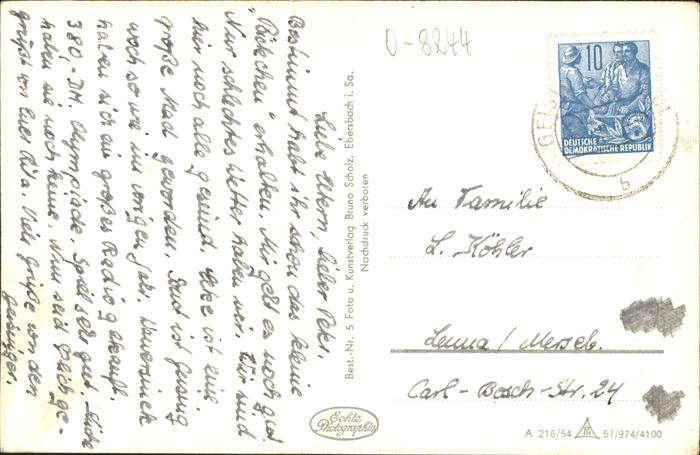 Liebe Eltern, lieber Peter,
Bestimmt habt ihr schon das kleine
"Päckchen" erhalten. Mir geht es noch gut.
Nur schlechtes Wetter haben wir. Wir sind
hier noch alle gesund. Elke ist eine
große Mad geworden. Sonst ist
noch so wie im vorigen Jahr.
haben sich ein großes Radio gekauft.
380,- DM. Olympiade. Spielt sehr gut.
haben sie noch keine. Nun seid herzlich ge-
grüßt von Eurer Ria. Viele Grüße von den
Geisinger.
Best.-Nr. 5 Foto u. Kunstverlag Bruno Scholz, Ebersbach i. Sa.
Nachdruck verboten
0-8244
10
DEUTSCHE
DEMOKRATISCHE REPUBLIK
b
An Familie
L. Köhler
Leuna / Merseb.
Carl-Bosch-Str. 24
Echte
Photographie
A 216/54 57/974/4100